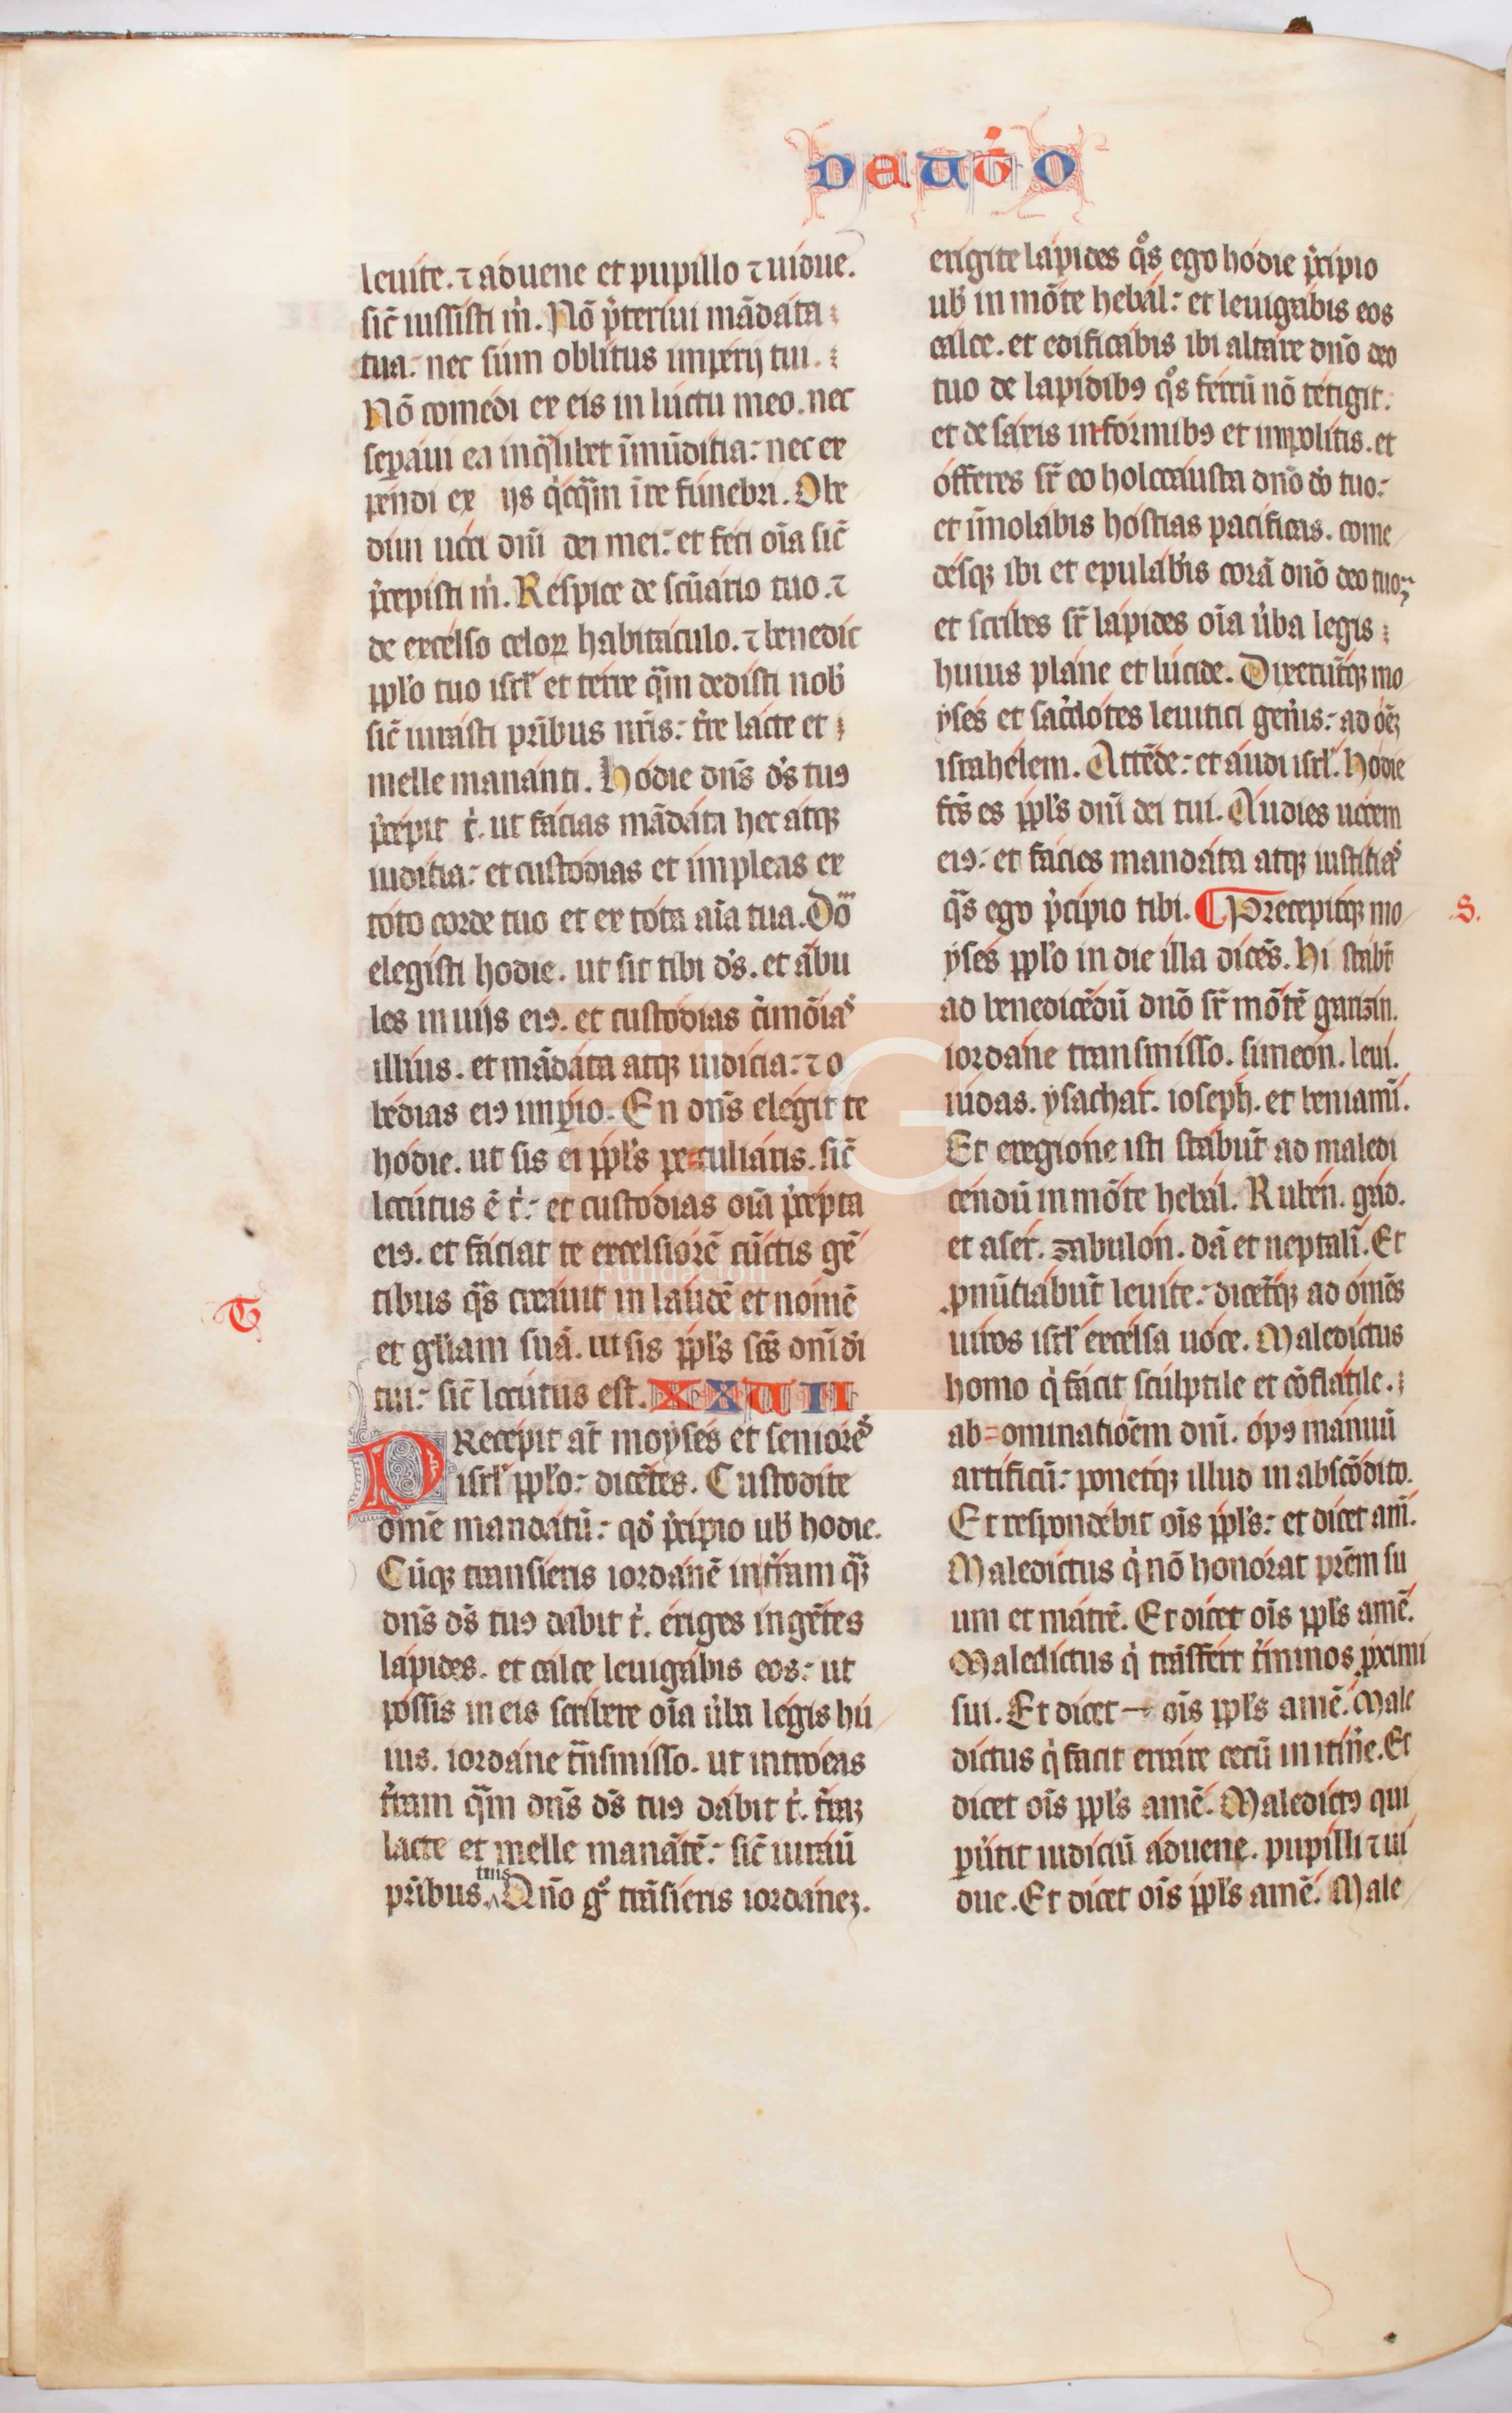 deut̉o
leuite. ⁊ aduene et pupillo ⁊ uidue.
sic̄ iussisti m̍. Nō p̄teriui mādata
tua: nec sum oblitus imperij tui.
Nō comedi ex eis in luctu meo. nec
separaui ea in q̄libet īmūditia: nec ex
pendi ex ijs q̍cq̄m ī re funebri. Obe
diui uoci dn̄i dei mei: et feci oīa sic̄
p̄cepisti m̍. Respice de sc̄uario tuo. ⁊
de excelso celoꝝ habitaculo. ⁊ benedic
pplo tuo isrl̄ et terre q̄m dedisti nob̍
sic̄ iurasti pr̄ibus nr̄is: t̄re lacte et
melle mananti. Hodie dn̄s d̄s tuꝰ
p̄cepit t̍. ut facias mādata hec atqꝫ
iuditia: et custodias et impleas ex
toto corde tuo et ex tota aīa tua. Dn̄o
elegisti hodie. ut sit tibi d̄s. et ābu
les in uijs eiꝰ. et custodias c̄imōias
illius. et mādata atqꝫ iudicia: ⁊ o
bedias eiꝰ imꝑio. En dn̄s elegit te
hodie. ut sis ei ppl̄s peculiaris. sic̄
locutus ē t̍: et custodias oīa p̄cepta
eiꝰ. et faciat te excelsiorē cūctis gē
tibus q̄s creauit in laudē et nomē
et gl̄iam suā. ut sis ppl̄s sc̄s dn̄i dī
tui: sic̄ locutus est. XXVII
PRecepit at̄ moyses et seniores
isrl̄ pplo: dicētes. Custodite
omē mandatū: qd̄ p̄cipio uob̍ hodie.
Cūqꝫ transieris iordanē in t̄ram q̄ꝫ
dn̄s d̄s tuꝰ dabit t̍. eriges ingētes
lapides. et calce leuigabis eos: ut
possis in eis scribere oīa u̍ba legis hu
ius. iordane tn̄smisso. ut introeas
t̄ram q̄m dn̄s d̄s tuꝰ dabit t̍. t̄raꝫ
lacte et melle manātē: sic̄ iurauit
pr̄ibus tuis. Qn̄o gͦ trāsieris iordaneꝫ.
T
erigite lapides qͦs ego hodie p̄cipio
uob̍ in mōte hebal: et leuigabis eos
calce. et edificabis ibi altare dn̄o deo
tuo de lapidibꝰ qͦs ferrū nō tetigit.
et de saxis informibꝰ et impolitis. et
offeres sr̄ eo holocausta dn̄o dō tuo:
et īmolabis hostias pacificas. come
desqꝫ ibi et epulab̍is corā dn̄o deo tuo
et scribes sr̄ lapides oīa u̍ba legis
huius plane et lucide. Dixerūtqꝫ mo
yses et sac̍dotes leuitici gen̄is: ad oēꝫ
israhelem. Attēde: et audi isrl̄. Hodie
fc̄s es ppl̄s dn̄i dei tui. Audies uocem
eiꝰ: et facies mandata atqꝫ iustitias
q̄s ego p̄cipio tibi. ¶Precepitqꝫ mo
yses pplo in die illa dicēs. Hi stabt̄
ad benedicēdū dn̄o sr̄ mōtē garizin.
iordane transmisso. simeon. leui.
iudas. ysachar. ioseph. et beniamī.
Et eregione isti stabūt ad maledi
cendū in mōte hebal. Ruben. gad.
et aser. zabulon. dā et neptalī. Et
pnūtiabūt leuite: dicētqꝫ ad omēs
uiros isrl̄ excelsa uoce. Maledictus
homo q̍ facit sculptile et cōflatile.
ab=ominatiōem dn̄i. opꝰ manuū
artificū: ponetqꝫ illud in abscōdito.
Et respondebit oīs ppl̄s: et dicet am̄.
Maledictus q̍ nō honorat pr̄em su
um et matrē. Et dicet oīs ppl̄s amē.
Maledictus q̍ trāsfert t̄minos proximi
sui. Et dicet oīs ppl̄s amē. Male
dictus q̍ facit errare cecū in itin̄e. Et
dicet oīs ppl̄s amē. Maledictꝰ qui
ꝑu̍tit iudiciū aduene. pupilli ⁊ ui
due. Et dicet oīs ppl̄s amē. Male
.S.
FLG
Fundación
Lázaro Galdiano